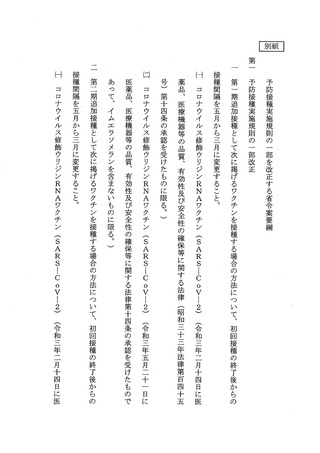 別紙
予防接種実施規則の一部を改正する省令案要綱
第一　予防接種実施規則の一部改正
一　第一期追加接種として次に掲げるワクチンを接種する場合の方法について、初回接種の終了後からの
接種間隔を五月から三月に変更すること。
㈠　コロナウイルス修飾ウリジンRNAワクチン（SARS―CoV―2）（令和三年二月十四日に医
薬品、医療機器等の品質、有効性及び安全性の確保等に関する法律（昭和三十五年法律第百四十五
号）第十四条の承認を受けたものに限る。）
㈡　コロナウイルス修飾ウリジンRNAワクチン（SARS―CoV―2）（令和三年五月二十一日に
医薬品、医療機器等の品質、有効性及び安全性の確保等に関する法律第十四条の承認を受けたもので
あって、イムエラソメランを含まないものに限る。）
二　第二期追加接種として次に掲げるワクチンを接種する場合の方法について、初回接種の終了後からの
接種間隔を五月から三月に変更すること。
㈠　コロナウイルス修飾ウリジンRNAワクチン（SARS―CoV―2）（令和三年二月十四日に医